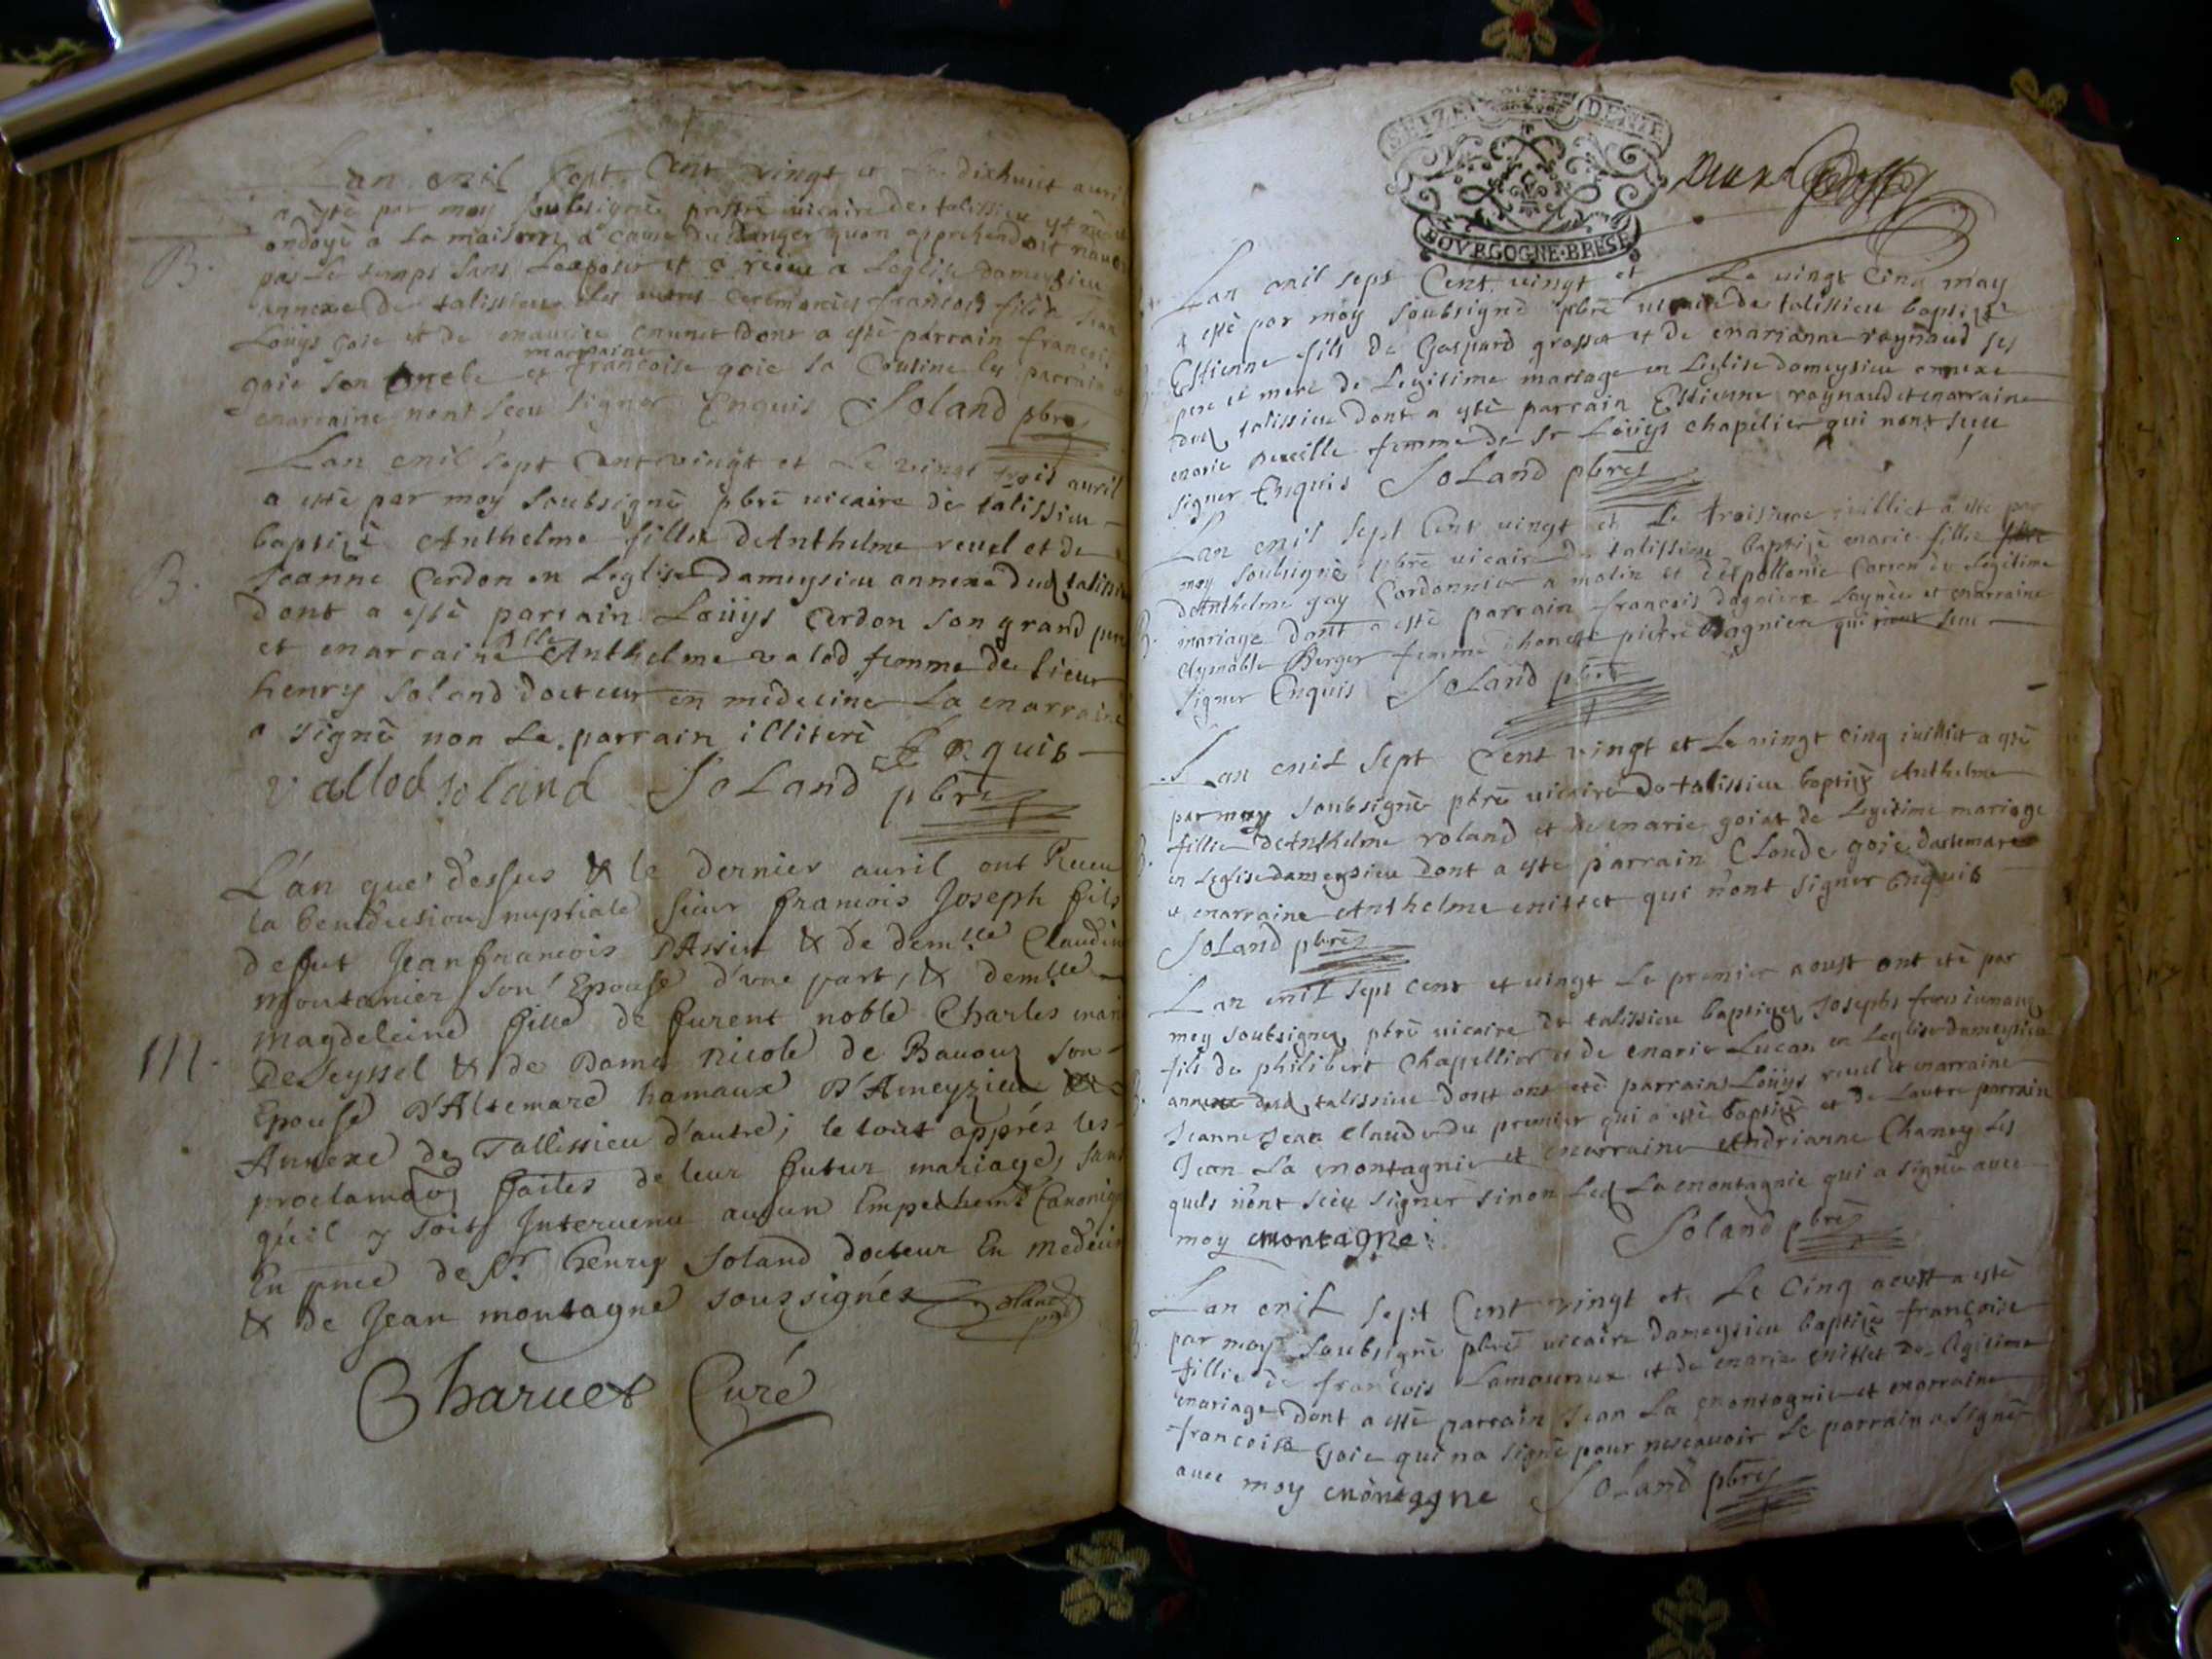 Lan mil sept Cent vingt et le dixhuict auril
a esté par moy soubsigné prestre uicaire de talissieu
ondoyé a la maison a cause du danger quon apprehendoit
pas le temps sans Lexposer et a receu a Leglise dameysieu
annexe de talissieu les autres ceremonies francois fils a Jean
Loüys goie et de dont a esté parrain francois
goie son oncle et marraine francoise goie sa Cousine les parrain
marraine nont sceu signer Enquis Soland pbre
B.
Lan mil sept Cent vingt et Le vingt trois auril
a esté par moy soubsigné pbre uicaire de talissieu
baptizé Anthelme fille dAnthelme reuel et de
Jeanne Cerdon en Leglise dameysieu annexe dud talissieu
dont a esté parrain Loüys Cerdon son grand pere
et marraine dlle Anthelme valod femme de sieur
henry Soland docteur en medecine La marraine
a signé non Le parrain illiteré Enquis
vallod soland Soland pbre
B.
L'an que dessus & le dernier auril ont Receu
la benediction nuptiale sieur francois Joseph fils
defut Jeanfrancois DAssin & de demlle Claudin
moutonier son Epouse d'vne part, & demlle
magdeleine fille de furent noble Charles
DeSeyssel & de Dame nicole de Bauouz son
Epouse D'Altemare hamaux D'Ameyzieu
Annexe de Tallissieu d'autre; le tout apprés les
proclamaõs faites de leur futur mariage, sans
qu'il y soit Interuenu aucun Empechemt Canoniq
En pnce de Sr. henry Soland docteur En medecin
& de Jean montagne soussignés Soland
M.
Charuet Curé
SEIZE DENIE
BOVRGOGNE·BRESE
Lan mil sept Cent vingt et Le vingt Cinq may
a esté par moy soubsigné pbre uicaire de talissieu baptizé
Estienne fils de Gaspard grosset et de marianne raynaud ses
pere et mere de Legitime mariage en Leglise dameysieu annexe
dud talissieu dont a esté parrain Estienne raynaud et marraine
marie femme de sr Loüys chapelier qui nont sceu
signer Enquis Soland pbre
Lan mil sept Cent vingt et Le troisieme iuilliet a este par
moy soubsigné pbre uicaire de talissieu baptizé marie fillie
dAnthelme gay Cordonnier a molin et dapollonie Carron de Legitime
mariage dont a esté parrain francois dagniere Laynée et marraine
Aymable Berger femme dhoneste pierre dagniere qui nont sceu
signer Enquis Soland pbre
Lan mil sept Cent vingt et Le vingt cinq iuilliet a esté
par moy soubsigné pbre uicaire de talissieu baptizé Anthelme
fillie dAnthelme roland et de marie goiat de Legitime mariage
en Leglise dameysieu dont a esté parrain Claude goie dastemare
et marraine Anthelme mittet qui nont signer Enquis
Soland pbre
Lan mil sept cent et vingt Le premier aoust ont eté par
moy soubsigné pbre uicaire de talissieu baptizez Josephs freres iumaux
fils de philibert Chapellier et de marie Lucan en Leglise dameysieu
annexe dud talissieu dont ont eté parrains Loüys reuel et marraine
Jeanne Jean Claude du premier qui a esté baptizé et de Lautre parrain
Jean La montagnie et marraine Andrianne Chaney Les
quels n'ont sceu signer sinon Led La montagnie qui a signé auec
moy montagne Soland pbre
Lan mil sept Cent vingt et Le Cinq aoust a esté
par moy soubsigné pbre uicaire dameysieu baptizé françoise
fillie de françois Lamoureux et de marie mittet de legitime
mariage dont a esté parrain Jean La montagnie et marraine
francoise goie qui na signé pour nescauoir Le parrain a signé
auec moy montagne Soland pbre